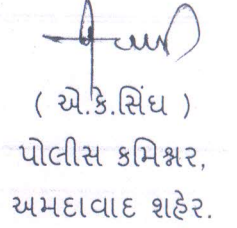 ( એ.કે.સિંઘ )
પોલીસ કમિશ્નર,
અમદાવાદ શહેર.